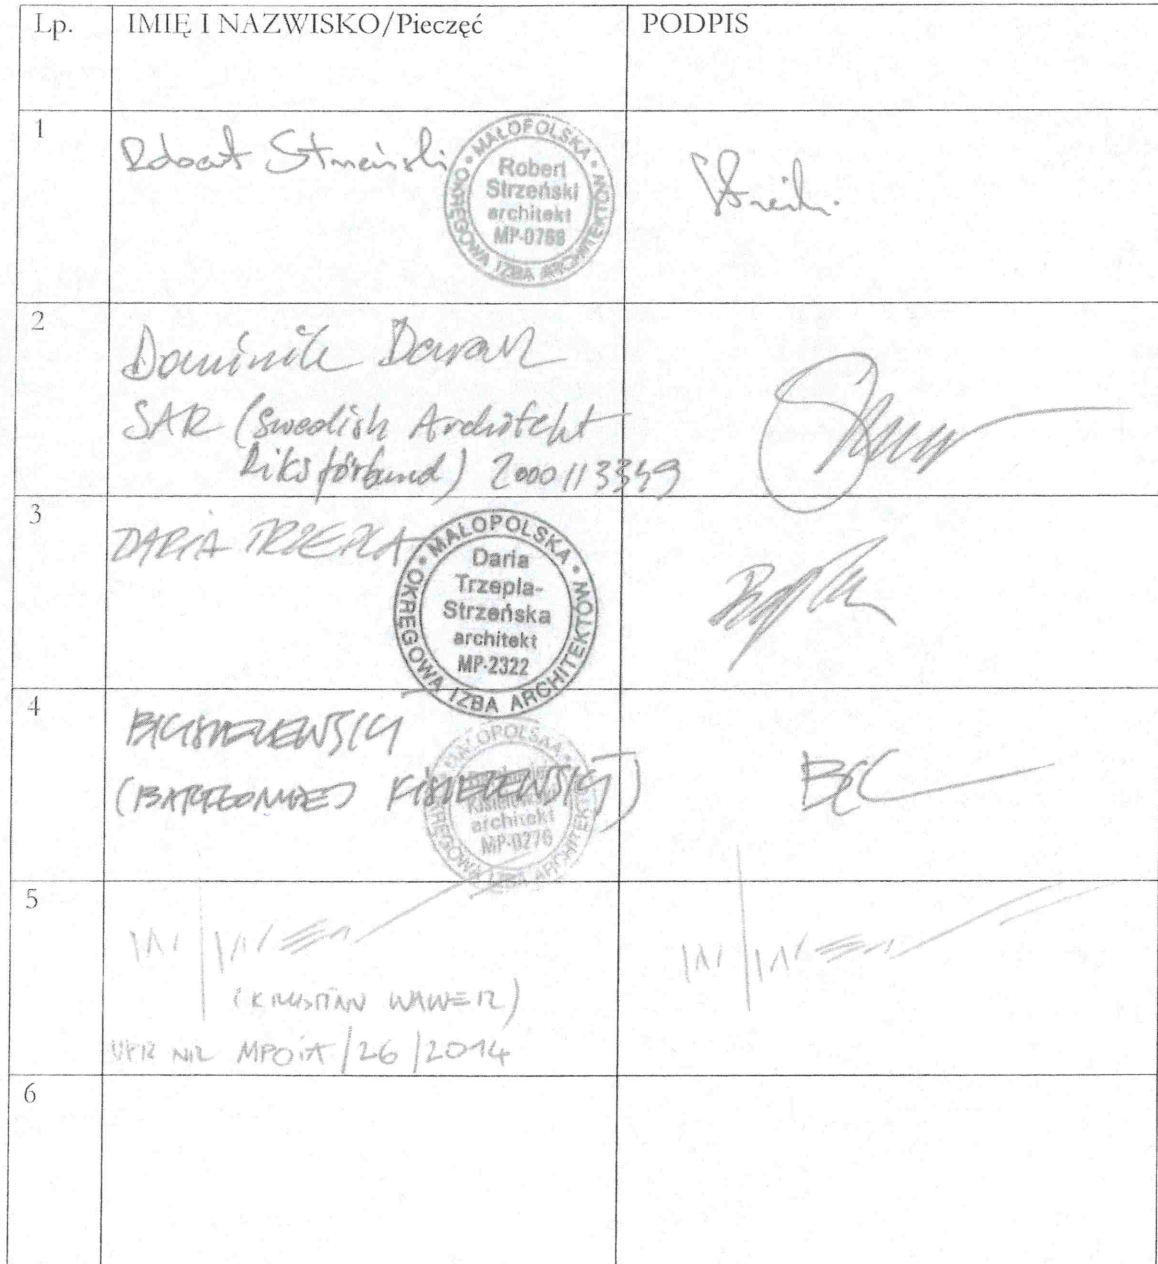 Lp. IMIĘ I NAZWISKO/Pieczęć PODPIS
1
Robert Strzeński
MAŁOPOLSKA • OKRĘGOWA IZBA ARCHITEKTÓW •
Robert
Strzeński
architekt
MP-0768
2
Dominik
SAR (Swedish Architekt
Riksförbund) 2000113349
3
DARIA TRZEPLA
MAŁOPOLSKA • OKRĘGOWA IZBA ARCHITEKTÓW •
Daria
Trzepla-
Strzeńska
architekt
MP-2322
4
(BARTŁOMIEJ KISIELEWSKI)
MAŁOPOLSKA • OKRĘGOWA IZBA ARCHITEKTÓW •
architekt
MP-0276
5
(KRYSTIAN WAWER)
UPR NR MPOIA/26/2014
6